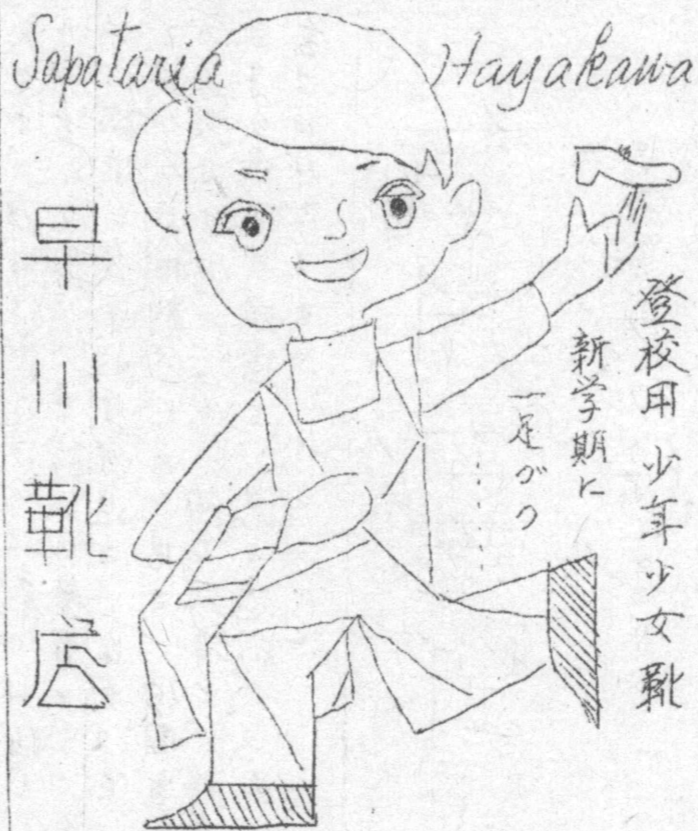 Sapataria Hayakawa
登校用 少年少女靴
新学期に
一足づつ
早川靴店